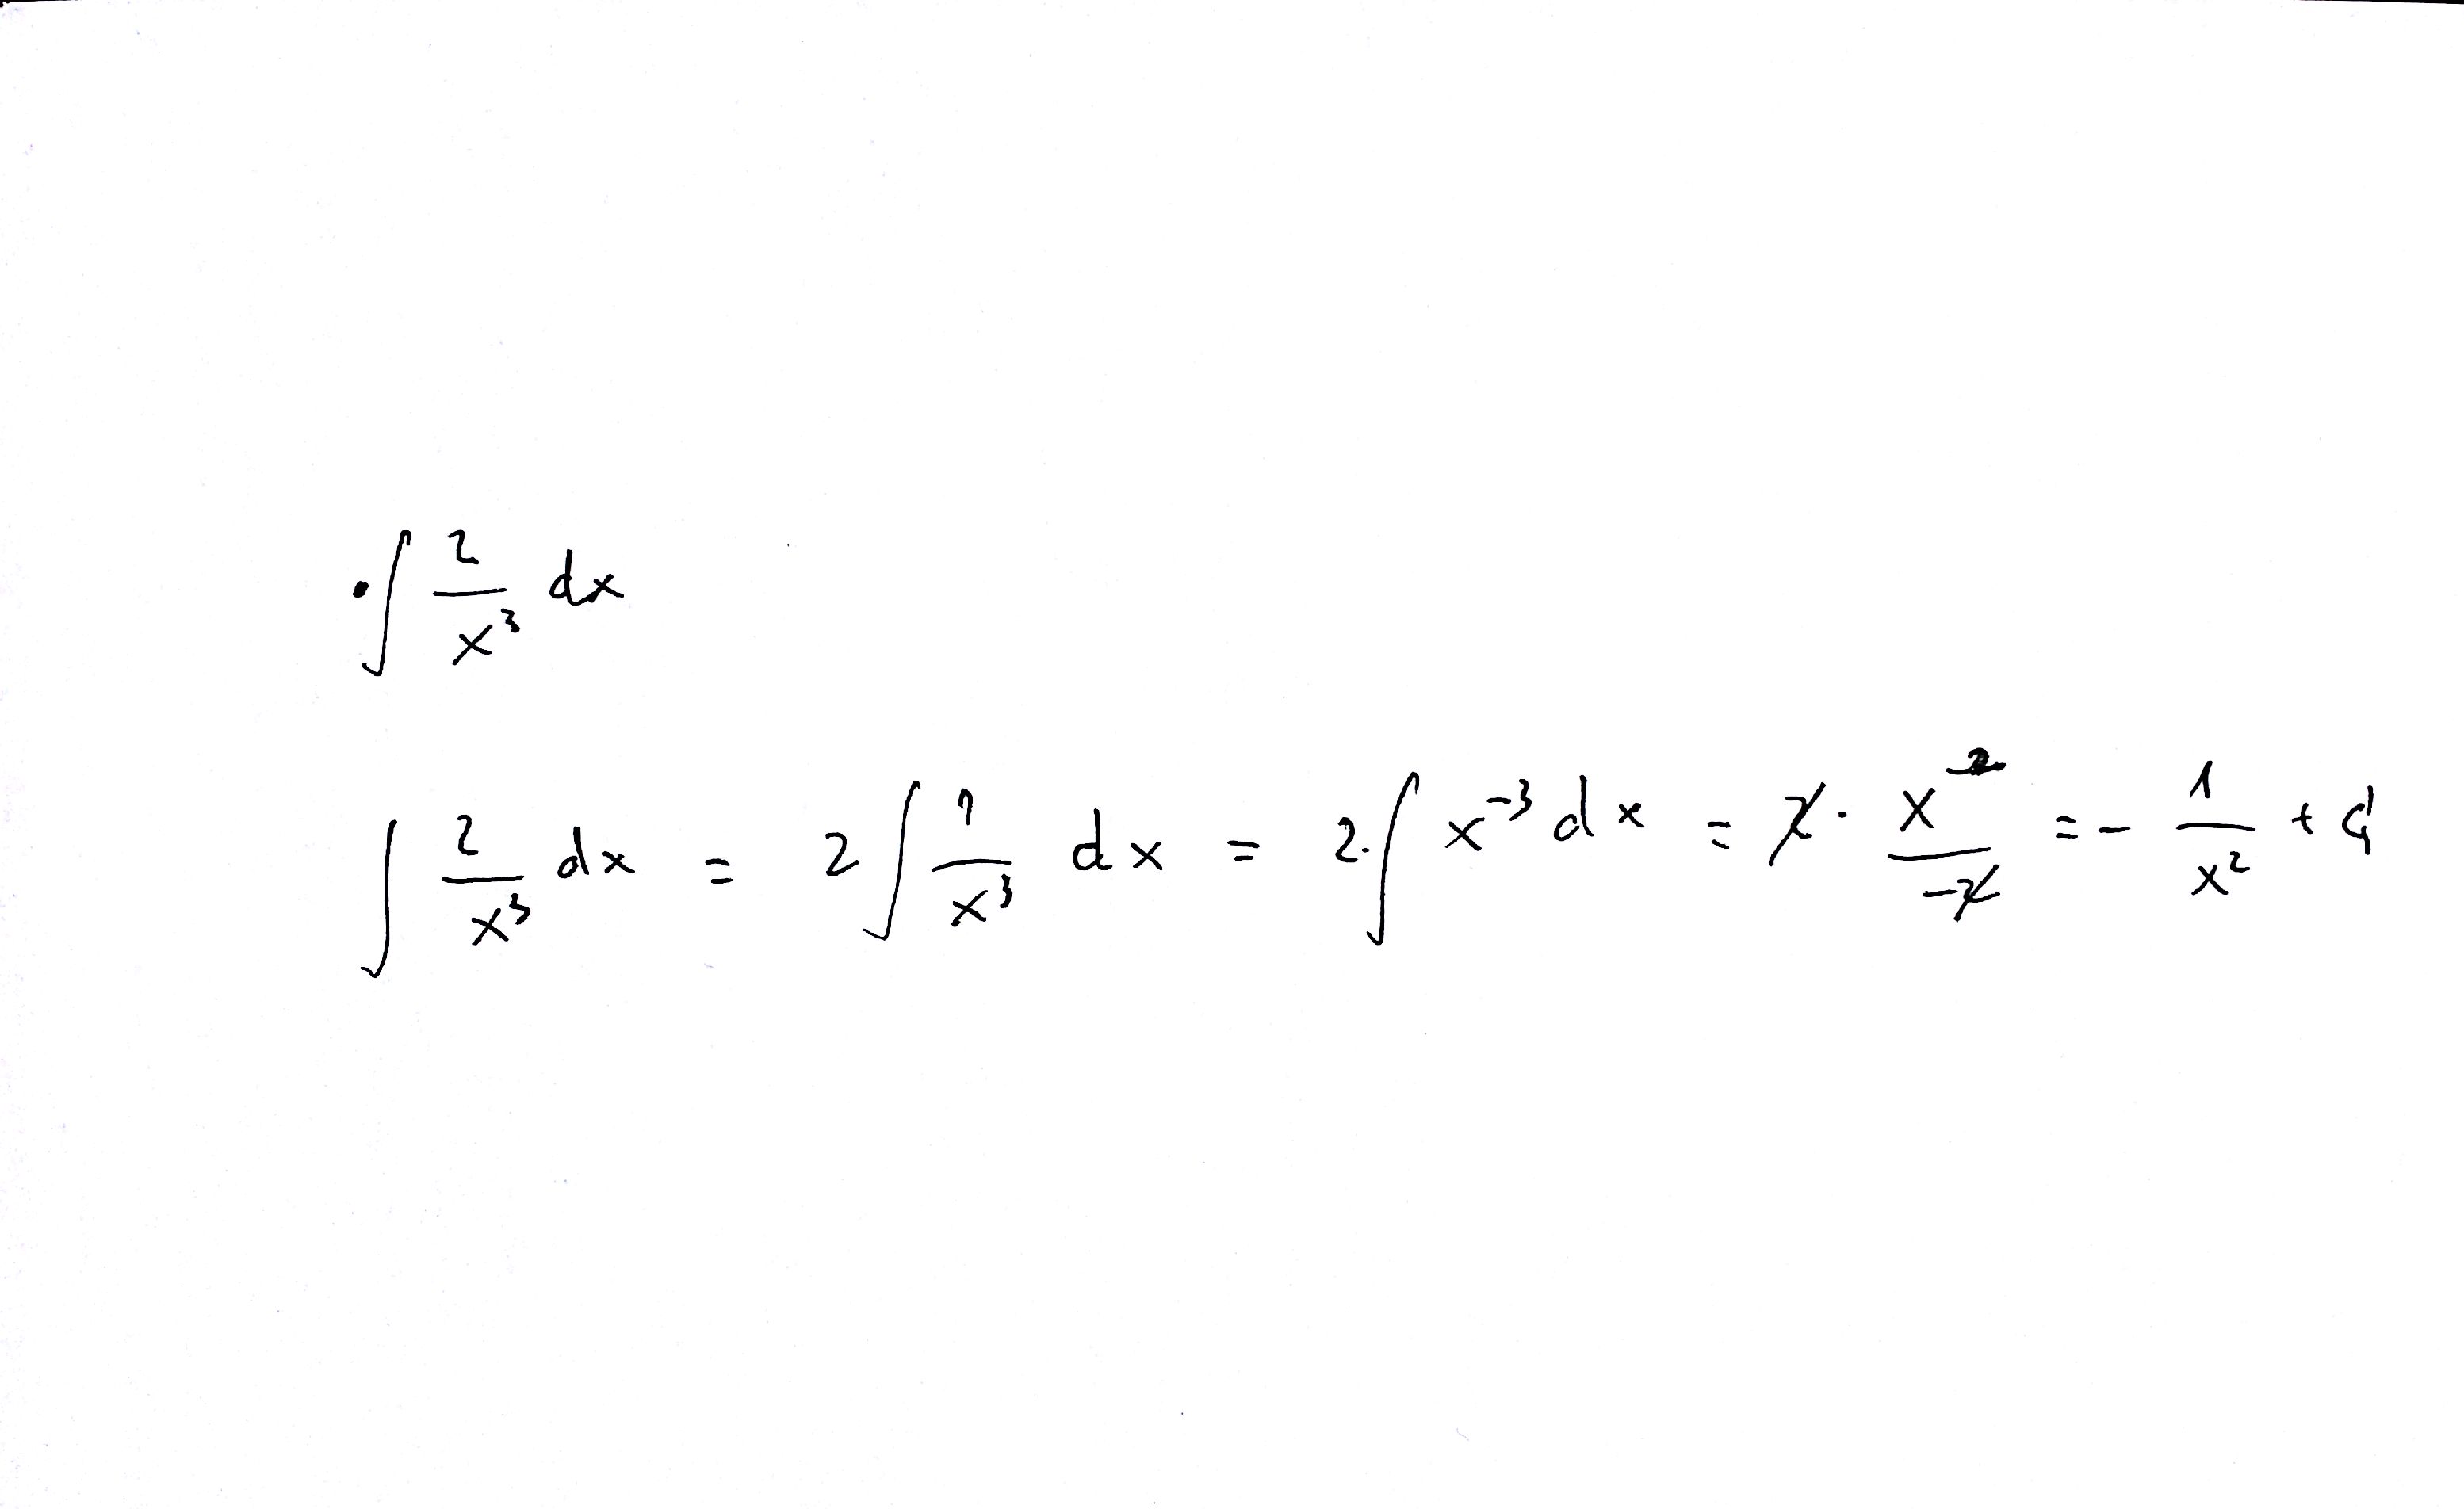 • ∫ 2/x³ dx
∫ 2/x³ dx = 2 ∫ 1/x³ dx = 2· ∫ x⁻³ dx = 2· x⁻²/-2 = - 1/x² + C